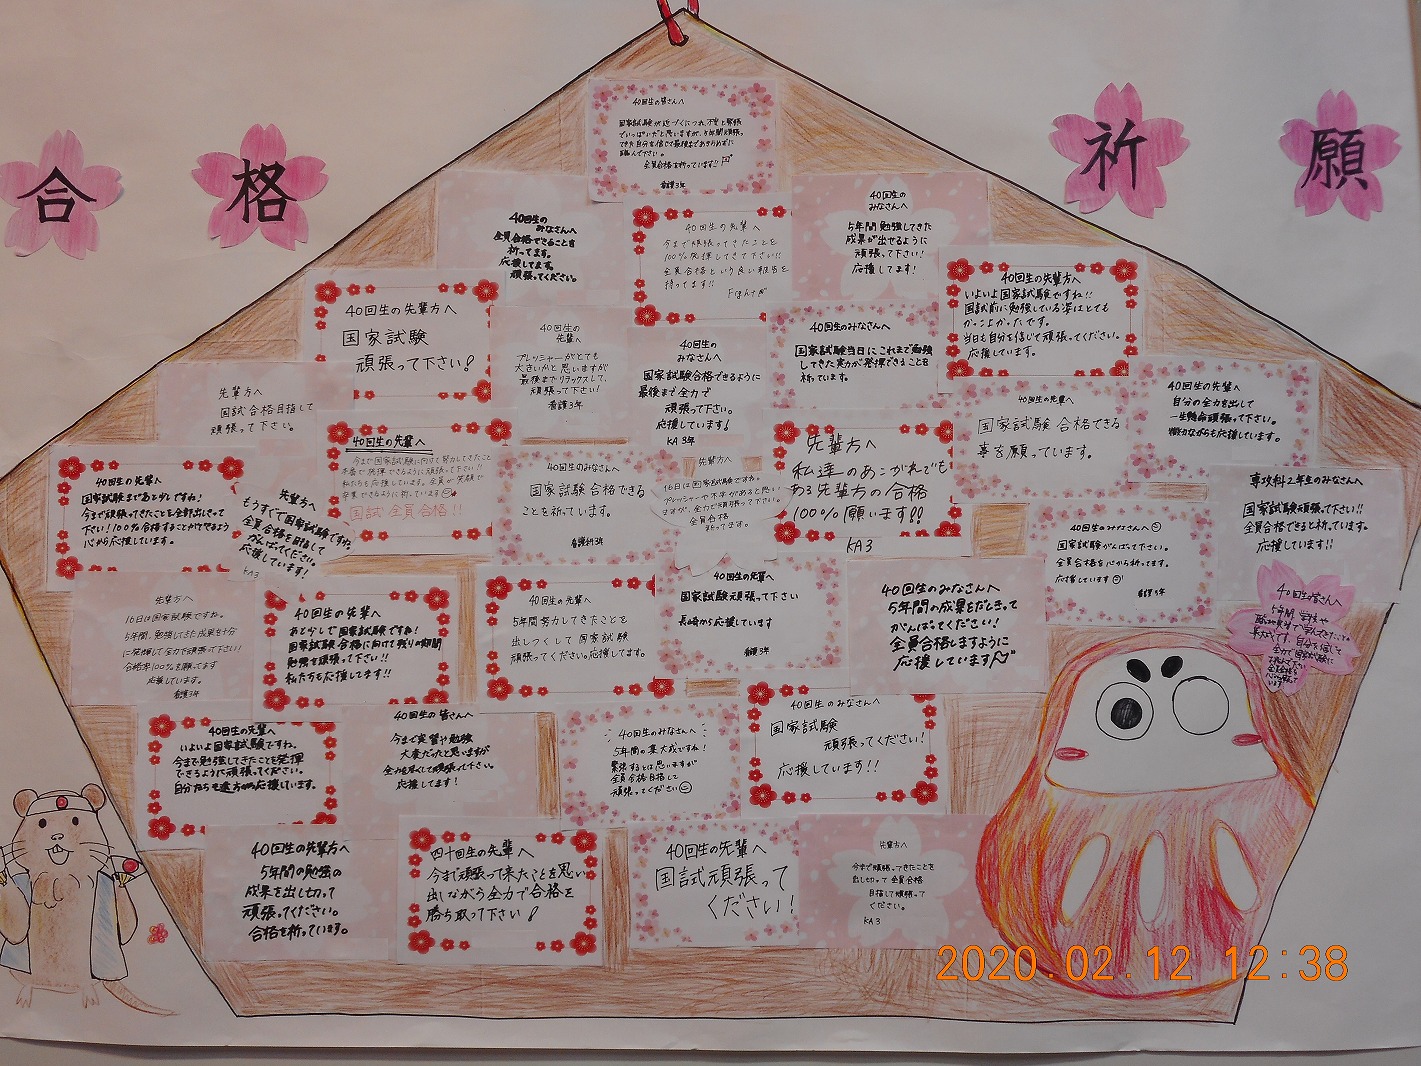 合 格 祈 願
40回生の皆さんへ
国家試験が近づくにつれ、不安と緊張
でいっぱいだと思いますが、5年間頑張っ
てきた自分を信じて最後まであきらめずに
臨んで下さい。
全員合格を祈っています!!
看護3年
40回生の
みなさんへ
全員合格できることを
祈ってます。
応援してます。
頑張ってください。
40回生の先輩へ
今まで頑張ってきたことを
100%発揮してきて下さい!!
全員合格という良い報告を
待ってます!!
40回生の
みなさんへ
5年間勉強してきた
成果が出せるように
頑張って下さい!
応援してます!
40回生の先輩方へ
国家試験
頑張って下さい!
40回生の
先輩へ
プレッシャーがとても
大きいかと思いますが
最後までリラックスして、
頑張って下さい!
看護3年
40回生の
みなさんへ
国家試験合格できるように
最後まで全力で
頑張って下さい。
応援しています!
KA3年
40回生のみなさんへ
国家試験当日にこれまで勉強
してきた実力が発揮できることを
祈っています。
40回生の先輩方へ
いよいよ国家試験ですね!!
国試前に勉強している姿はとても
かっこよかったです。
当日も自分を信じて頑張ってください。
応援しています。
先輩方へ
国試合格目指して
頑張って下さい。
40回生の先輩へ
今まで国家試験に向けて努力してきたこと
本番で発揮できるように頑張って下さい!!
私たちも応援してます。全員が笑顔で
卒業できるように祈っています
国試全員合格!!
40回生のみなさんへ
国家試験合格できる
ことを祈っています。
看護科3年
先輩方へ
16日は国家試験ですね。
プレッシャーや不安があると思い
ますが、全力で頑張って下さい。
全員合格
祈ってます。
先輩方へ
私達のあこがれでも
ある先輩方の合格
100%願います!!
KA3
40回生の先輩へ
国家試験合格できる
事を願っています。
40回生の先輩へ
自分の全力を出して
一生懸命頑張って下さい。
微力ながらも応援しています。
40回生の先輩へ
国家試験まであと少しですね!
今まで頑張ってきたことを全部出しきって
下さい!100%合格することができるよう
心から応援しています。
先輩方へ
もうすぐで国家試験ですね。
全員合格を目指して
がんばってください。
応援しています!
KA3
40回生のみなさんへ
国家試験がんばって下さい。
全員合格を心から祈ってます。
応援しています
看護3年
専攻科2年生のみなさんへ
国家試験頑張って下さい!!
全員合格できると祈っています。
応援しています!!
先輩方へ
16日は国家試験ですね。
5年間、勉強してきた成果を十分
に発揮して全力で頑張って下さい!
合格率100%を願ってます
応援しています。
看護3年
40回生の先輩へ
あと少しで国家試験ですね!
国家試験合格に向けて残りの期間
勉強を頑張って下さい!!
私たちも応援してます!!
40回生の先輩へ
5年間努力してきたことを
出しつくして国家試験
頑張ってください。応援してます。
40回生の先輩へ
国家試験頑張って下さい
長崎から応援しています
看護3年
40回生のみなさんへ
5年間の成果をだしきって
がんばってください!
全員合格しますように
応援しています
40回生の皆さんへ
5年間、学校や
全力で国家試験に
40回生の先輩へ
いよいよ国家試験ですね。
今まで勉強してきたことを発揮
できるように頑張ってください。
自分たちも遠方から応援しています。
40回生の皆さんへ
今まで実習や勉強
大変だったと思いますが
全力を尽くして頑張って下さい。
応援してます!
40回生のみなさんへ
5年間の集大成ですね!
緊張するとは思いますが
全員合格目指して
頑張ってください
40回生のみなさんへ
国家試験
頑張ってください!
応援しています!!
40回生の先輩方へ
5年間の勉強の
成果を出し切って
頑張ってください。
合格を祈っています。
四十回生の先輩へ
今まで頑張って来たことを思い
出しながら全力で合格を
勝ち取って下さい!
40回生の先輩へ
国試頑張って
ください!
先輩方へ
今まで頑張ってきたことを
出し切って全員合格
目指して頑張って
ください。
KA3
2020.02.12 12:38